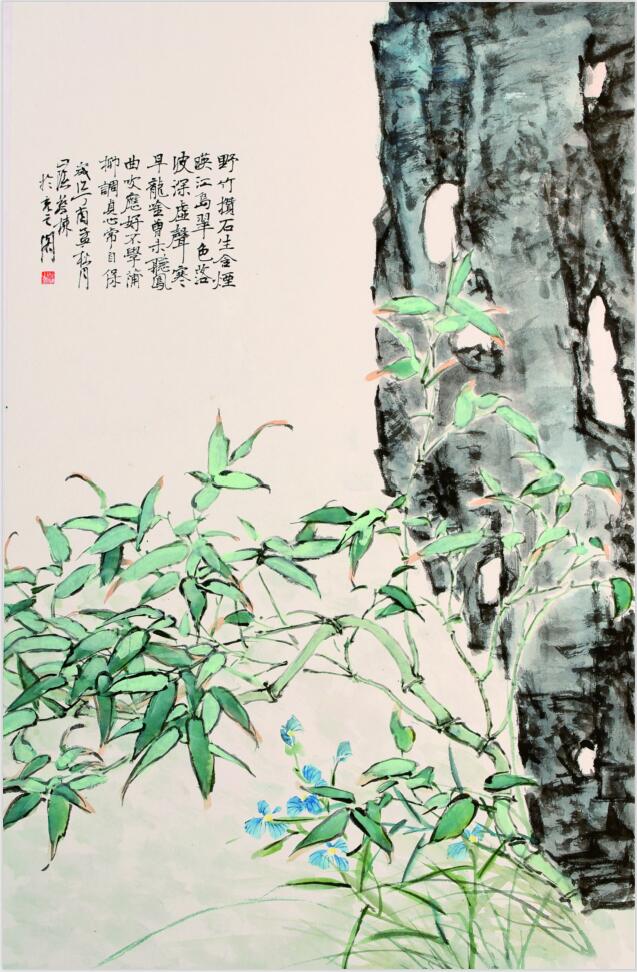 野竹攢石生含煙
暎江島翠色落
波深虛聲寒
早龍吟曾未聽鳳
曲吹應好不學蒲
柳調貞心常自保
歲次丁酉孟秋月
山陰
於